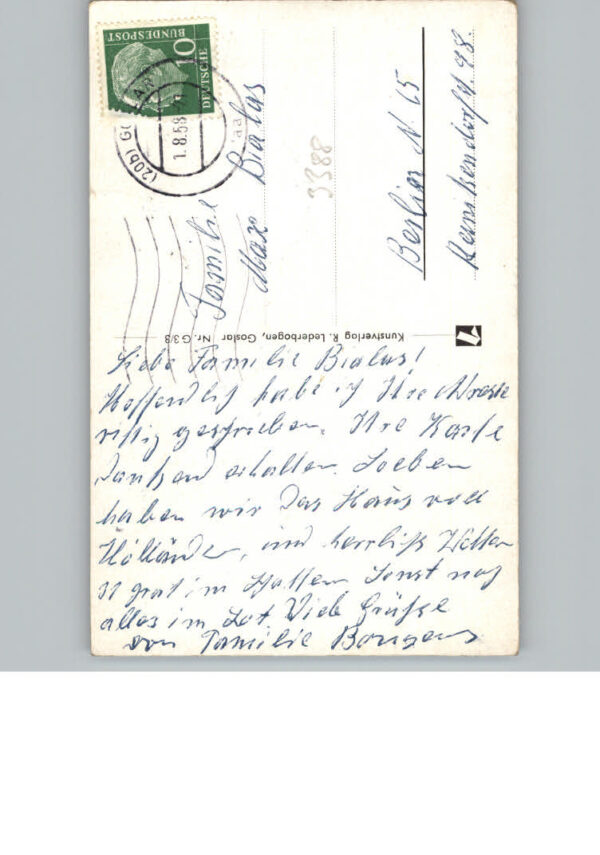 DEUTSCHE
BUNDESPOST
10
(20b) GOSLAR
1.8.58
Familie
Max Bialas
3388
Berlin N. 65
Reinickendorfstr 98.
Kunstverlag R. Lederbogen, Goslar Nr. G3/3
Liebe Familie Bialas!
Hoffendlich habe ich Ihre Adresse
richtig geschrieben. Ihre Karte
dankend erhalten. Soeben
haben wir das Haus voll
Holländer, und herrlich Wetter
32 grat im Schatten Sonst noch
alles im Lot Viele Grüße
von Familie